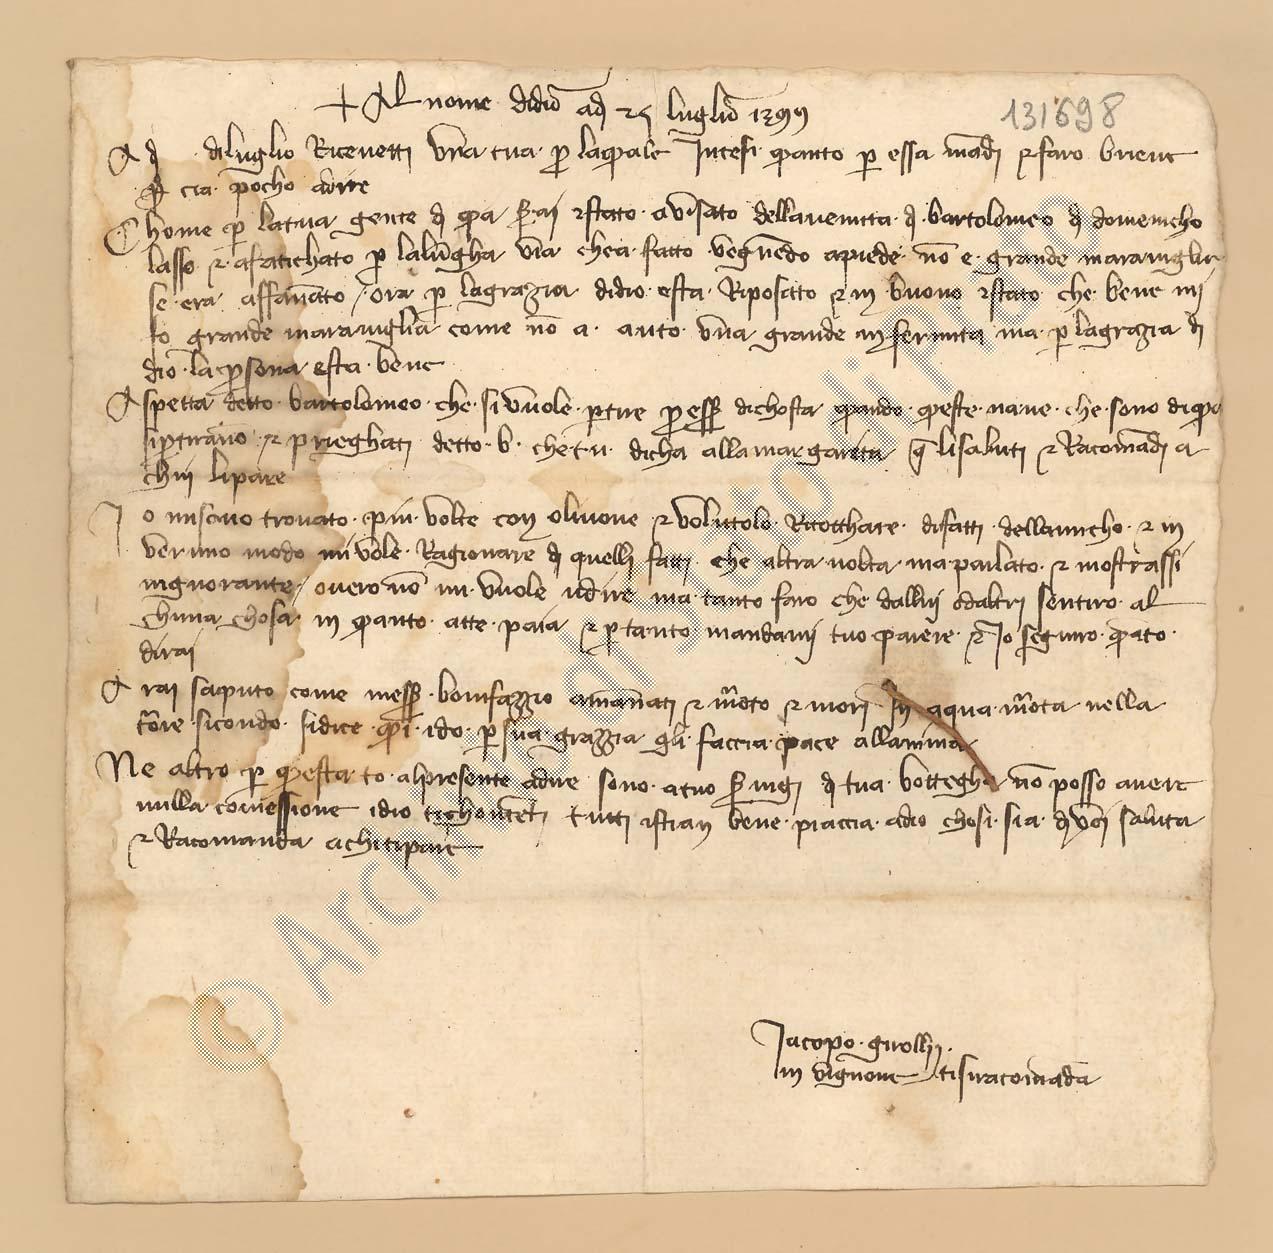 + Al nome di dio adi 25 luglio 1399
131698
A di di luglio Ricevetti una tua per la quale Intesi quanto per essa mandi e faro brieve
per cia pocho a dire
Chome per la tua gente di qua sarai istato avisato della venuta di bartolomeo di domenicho
lasso e afatichato per la lungha via chea fatto vegnendo a piede non e grande maraviglia
se era affannato ora per la grazia di dio esta Riposato e in buono istato che bene mi
fo grande maraviglia come non a auto una grande infermita ma per la grazia di
dio la persona esta bene
Aspetta detto bartolomeo che si vuole partire per esser di chosta quando queste nave che sono di qua
si partirano e prieghati detto b. che tu dicha alla margarita che li saluti e Racomandi a
chui li pare
Io mi sono trovato piu volte con olivone e volutolo Ricotthare di fatti dell amicho e in
veruno modo mi vole Ragionare di quelli fatti che altra volta ma parlato e mostrassi
ingnorante overo non mi vuole udire ma tanto faro che dallui o daltri sentiro al
chuna chosa in quanto atte paia e per tanto mandami tuo parere e Io seguiro quanto
dirai
Arai saputo come messer bonifazzio amanati e morto e mori In aqua morta nella
torre sicondo si dice quei ido per sua grazzia gli faccia pace allanima
Ne altro per questa to al presente a dire sono a tuo servigi di tua bottegha non posso avere
nulla comessione idio ti chontenti tutti istian bene piaccia a dio chosi sia di voi saluta
e Racomanda a chi ti pare
Iacopo girolli
in vignone ti si racomanda
© Archivio di Stato di Prato